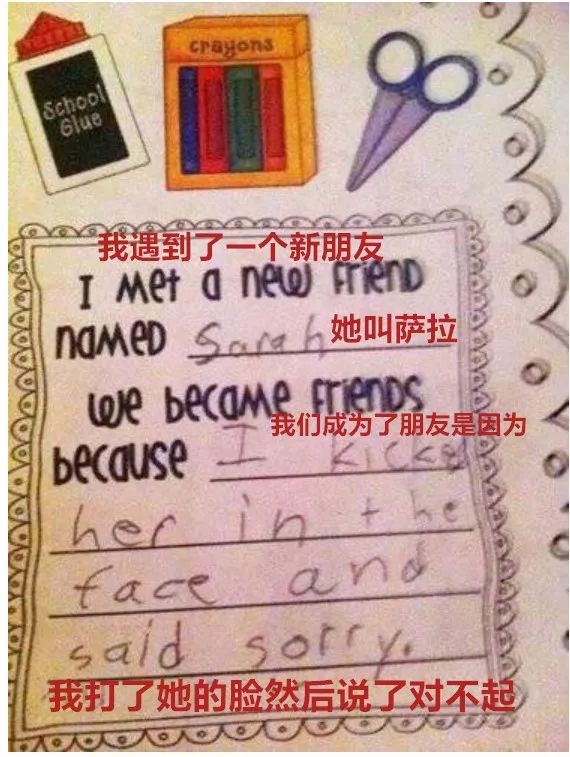 School
Glue
crayons
我遇到了一个新朋友
I met a new friend
named Sarah 她叫萨拉
we became friends
我们成为了朋友是因为
because I kicked
her in the
face and
said sorry.
我打了她的脸然后说了对不起